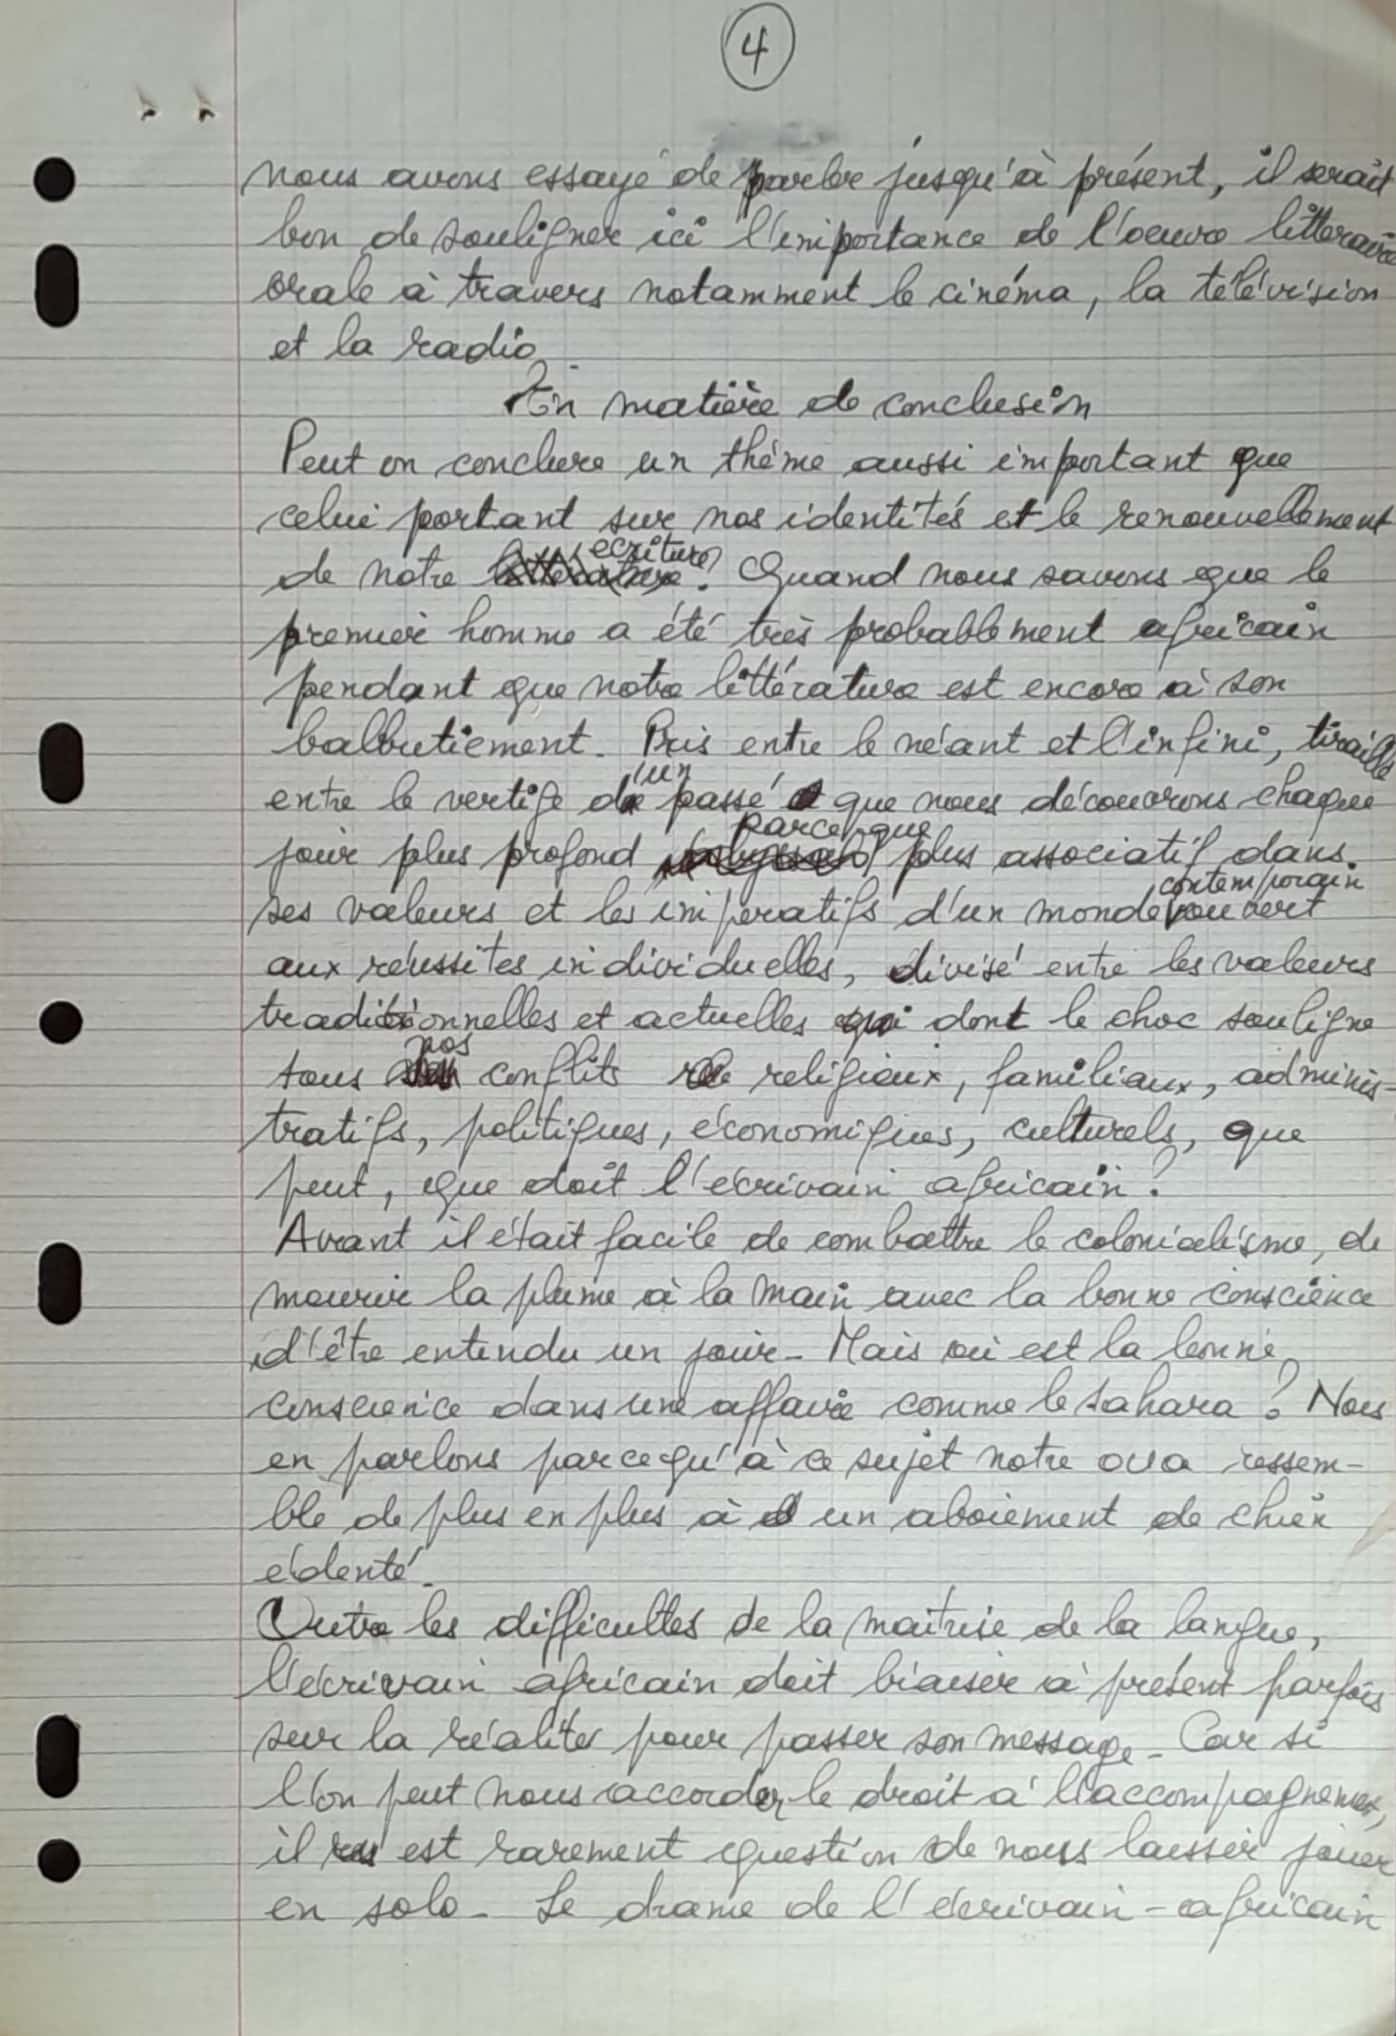 4
nous avons essayé de parler jusqu'à présent, il serait
bon de souligner ici l'importance de l'oeuvre littéraire
orale à travers notamment le cinéma, la télévision
et la radio.
En matière de conclusion
Peut on conclure un thème aussi important que
celui portant sur nos identités et le renouvellement
de notre écriture? Quand nous savons que le
premier homme a été très probablement africain
pendant que notre littérature est encore à son
balbutiement. Pris entre le néant et l'infini, tiraillé
entre le vertige d'un passé que nous découvrons chaque
jour plus profond parce que plus associatif dans
ses valeurs et les impératifs d'un monde contemporain ouvert
aux réussites individuelles, divisé entre les valeurs
traditionnelles et actuelles dont le choc souligne
tous nos conflits religieux, familiaux, adminis-
tratifs, politiques, économiques, culturels, que
peut, que doit l'écrivain africain?
Avant il était facile de combattre le colonialisme, de
mourir la plume à la main avec la bonne conscience
d'être entendu un jour. Mais où est la bonne
conscience dans une affaire comme le sahara? Nous
en parlons parcequ'à ce sujet notre oua ressem-
ble de plus en plus à un aboiement de chien
édenté.
Outre les difficultés de la maîtrise de la langue,
l'écrivain africain doit biaiser à présent parfois
sur la réalité pour passer son message. Car si
l'on peut nous accorder le droit à l'accompagnement,
il est rarement question de nous laisser jouer
en solo. Le drame de l'écrivain-africain